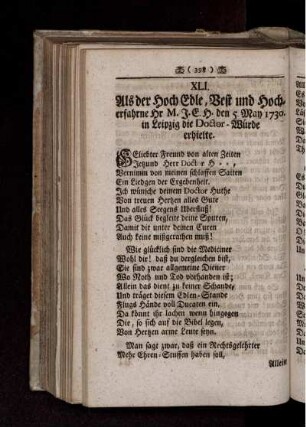 ( 398 )
XLI.
Als der Hoch Edle, Vest und Hoch-
erfahrne Hr M. J. E. H. den 5 May 1730.
in Leipzig die Doctor-Würde
erhielte.
GEliebter Freund von alten Zeiten
Jetzund Herr Doctor H . .,
Vernimm von meinen schlaffen Saiten
Ein Liedgen der Ergebenheit.
Ich wünsche deinem Doctor Huthe
Von treuen Hertzen alles Gute
Und alles Seegens Uberfluß!
Das Glück begleite deine Spuren,
Damit die unter deinen Curen
Auch keine mißgerathen muß!
Wie glücklich sind die Mediciner
Wohl die! daß du dergleichen bist,
Sie sind zwar allgemeine Diener
Wo Noth und Tod vorhanden ist;
Allein das dient zu keiner Schande,
Und träget diesem Edlen-Stande
Flugs Hände voll Ducaten ein.
Da könnt ihr lachen wenn hingegen
Die, so sich auf die Bibel legen,
Von Hertzen arme Leute seyn.
Man sagt zwar, daß ein Rechtsgelehrter
Mehr Ehren-Stuffen haben soll,
Allein